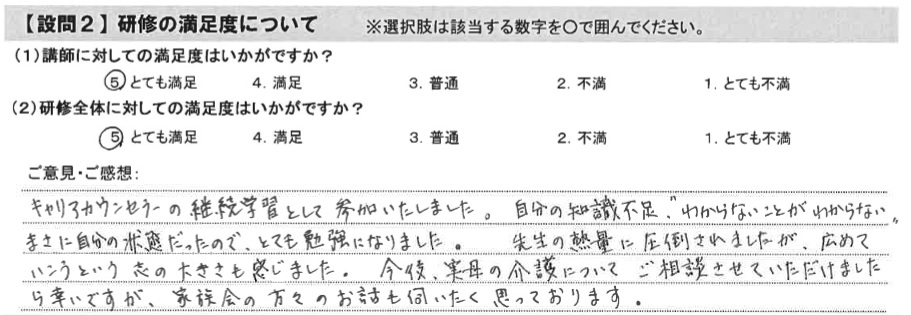 【設問2】研修の満足度について　※選択肢は該当する数字を〇で囲んでください。
(1)講師に対しての満足度はいかがですか？
5. とても満足　4. 満足　3. 普通　2. 不満　1. とても不満
(2)研修全体に対しての満足度はいかがですか？
5. とても満足　4. 満足　3. 普通　2. 不満　1. とても不満
ご意見・ご感想:
キャリアカウンセラーの継続学習として参加いたしました。自分の知識不足、"わからないことがわからない"
まさに自分の状態だったので、とても勉強になりました。　先生の熱量に圧倒されましたが、広めて
いこうという志の大きさも感じました。今後、実母の介護についてご相談させていただけました
ら幸いですが、家族会の方々のお話も伺いたく思っております。